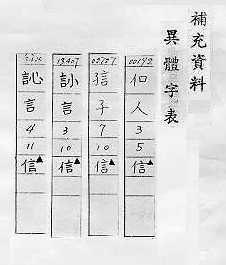 補充資料
異體字表
00192
㐰
人
3
5
信▲
子
7
10
信▲
13407
言
3
10
信▲
訫
言
4
11
信▲